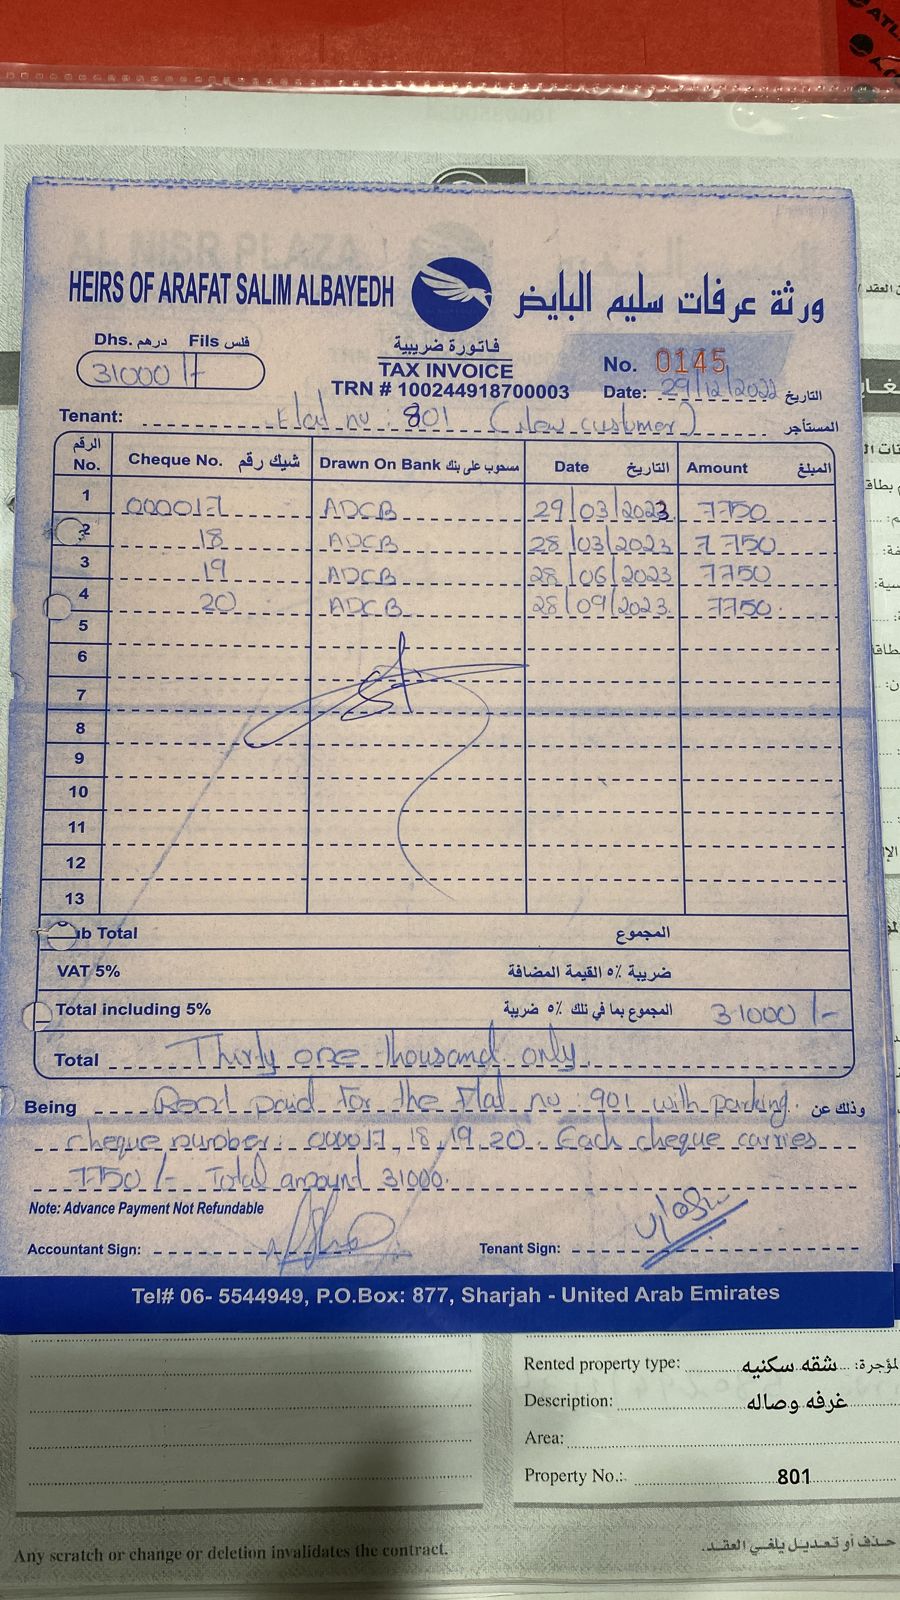 HEIRS OF ARAFAT SALIM ALBAYEDH
ورثة عرفات سليم البايض
Dhs. درهم Fils فلس
31000/-
فاتورة ضريبية
TAX INVOICE
TRN # 100244918700003
No. 0145
Date: 29/12/2022 التاريخ
Tenant: Flat no : 801 (New customer) المستأجر
الرقم No. Cheque No. شيك رقم Drawn On Bank مسحوب على بنك Date التاريخ Amount المبلغ
1 000017 ADCB 29/03/2023 7750
2 18 ADCB 28/03/2023 7750
3 19 ADCB 28/06/2023 7750
4 20 ADCB 28/09/2023 7750
5
6
7
8
9
10
11
12
13
ub Total المجموع
VAT 5% ضريبة ٥٪ القيمة المضافة
Total including 5% المجموع بما في ذلك ٥٪ ضريبة 31000/-
Total Thirty one thousand only.
Being Rent paid for the Flat no : 901 with parking. وذلك عن
cheque number: 000017, 18, 19, 20. Each cheque carries
7750/- Total amount 31000.
Note: Advance Payment Not Refundable
Accountant Sign:
Tenant Sign:
Tel# 06- 5544949, P.O.Box: 877, Sharjah - United Arab Emirates
Rented property type: شقه سكنيه
Description: غرفه وصاله
Area:
Property No.: 801
Any scratch or change or deletion invalidates the contract.
حذف أو تعديل يلغي العقد.